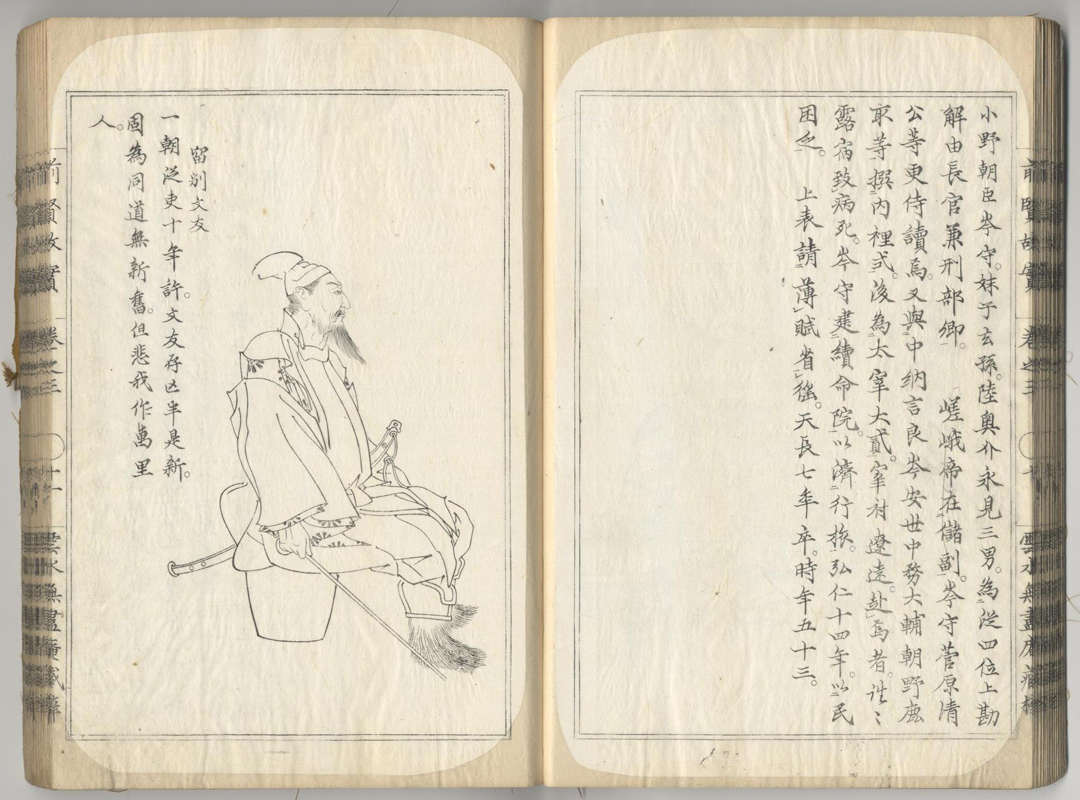 小野朝臣岑守。妹子玄孫。陸奥介永見三男。為従四位上勘
解由長官兼刑部卿。　嵯峨帝在儲副。岑守菅原清
公等更侍讀焉。又與中納言良岑安世中務大輔朝野鹿
取等撰内裡式。後為太宰大貳。宰府遼遠。赴焉者。往々
露宿致病死。岑守建續命院。以濟行旅。弘仁十四年。以民
困乏。　上表請薄賦省徭。天長七年卒。時年五十三。
前賢故實　卷之三
雲水無盡庵藏梓
留別文友
一朝従吏十年許。文友存亡半是新。
固為同道無新舊。但悲我作萬里
人。
前賢故實　卷之三　十一
雲水無盡庵藏梓